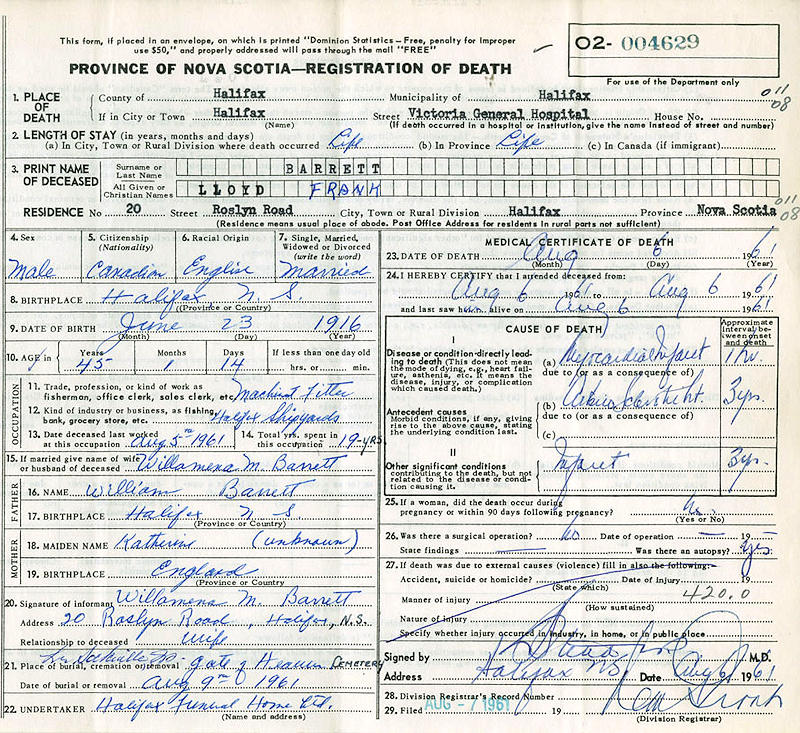 This form, if placed in an envelope, on which is printed "Dominion Statistics—Free, penalty for improper
use $50," and properly addressed will pass through the mail "FREE"
O2- 004629
PROVINCE OF NOVA SCOTIA—REGISTRATION OF DEATH
For use of the Department only
1. PLACE OF DEATH County of Halifax Municipality of Halifax 011
If in City or Town Halifax Street Victoria General Hospital House No. 08
(Name) (If death occurred in a hospital or institution, give the name instead of street and number)
2. LENGTH OF STAY (in years, months and days)
(a) In City, Town or Rural Division where death occurred Life (b) In Province Life (c) In Canada (if immigrant)
3. PRINT NAME OF DECEASED Surname or Last Name BARRETT
All Given or Christian Names LLOYD FRANK
RESIDENCE No 20 Street Roslyn Road City, Town or Rural Division Halifax Province Nova Scotia 011 08
(Residence means usual place of abode. Post Office Address for residents in rural parts not sufficient)
4. Sex 5. Citizenship (Nationality) 6. Racial Origin 7. Single, Married, Widowed or Divorced (write the word)
Male Canadian English Married
8. BIRTHPLACE Halifax N. S.
(Province or Country)
9. DATE OF BIRTH June 23 1916
(Month) (Day) (Year)
10. AGE in Years Months Days If less than one day old
45 1 14 hrs. or min.
OCCUPATION
11. Trade, profession, or kind of work as
fisherman, office clerk, sales clerk, etc. Machinist Fitter
12. Kind of industry or business, as fishing,
bank, grocery store, etc. Halifax Shipyards
13. Date deceased last worked at this occupation Aug 5th 1961 14. Total yrs. spent in this occupation 19-yrs.
15. If married give name of wife or husband of deceased Willamena M. Barrett
FATHER
16. NAME William Barrett
17. BIRTHPLACE Halifax N. S.
(Province or Country)
MOTHER
18. MAIDEN NAME Katherine (unknown)
19. BIRTHPLACE England
(Province or Country)
20. Signature of informant Willamena M. Barrett
Address 20 Roslyn Road, Halifax, N.S.
Relationship to deceased wife
21. Place of burial, cremation or removal Gate of Heaven CEMETERY
Date of burial or removal Aug 9th 1961
22. UNDERTAKER Halifax Funeral Home Ltd.
(Name and address)
MEDICAL CERTIFICATE OF DEATH
23. DATE OF DEATH Aug 6 1961
(Month) (Day) (Year)
24. I HEREBY CERTIFY that I attended deceased from:
Aug 6 1961 to Aug 6 1961
and last saw him alive on Aug 6 1961
CAUSE OF DEATH Approximate Interval between onset and death
I
Disease or condition directly leading to death (This does not mean the mode of dying, e.g., heart failure, asthenia, etc. It means the disease, injury, or complication which caused death.)
(a) Myocardial Infarct 1 hr.
due to (or as a consequence of)
Antecedent causes
Morbid conditions, if any, giving rise to the above cause, stating the underlying condition last.
(b) 3 yrs.
due to (or as a consequence of)
(c)
II
Other significant conditions
contributing to the death, but not related to the disease or condition causing it.
Infarct 3 yr.
25. If a woman, did the death occur during
pregnancy or within 90 days following pregnancy?
(Yes or No)
26. Was there a surgical operation? No Date of operation — 19
State findings — Was there an autopsy? Yes
27. If death was due to external causes (violence) fill in also the following:
Accident, suicide or homicide? Date of injury 19
(State which)
Manner of injury 420.0
(How sustained)
Nature of injury
Specify whether injury occurred in industry, in home, or in public place
Signed by M.D.
Address Halifax NS. Date Aug 6 1961
28. Division Registrar's Record Number
29. Filed AUG - 7 1961 19
(Division Registrar)